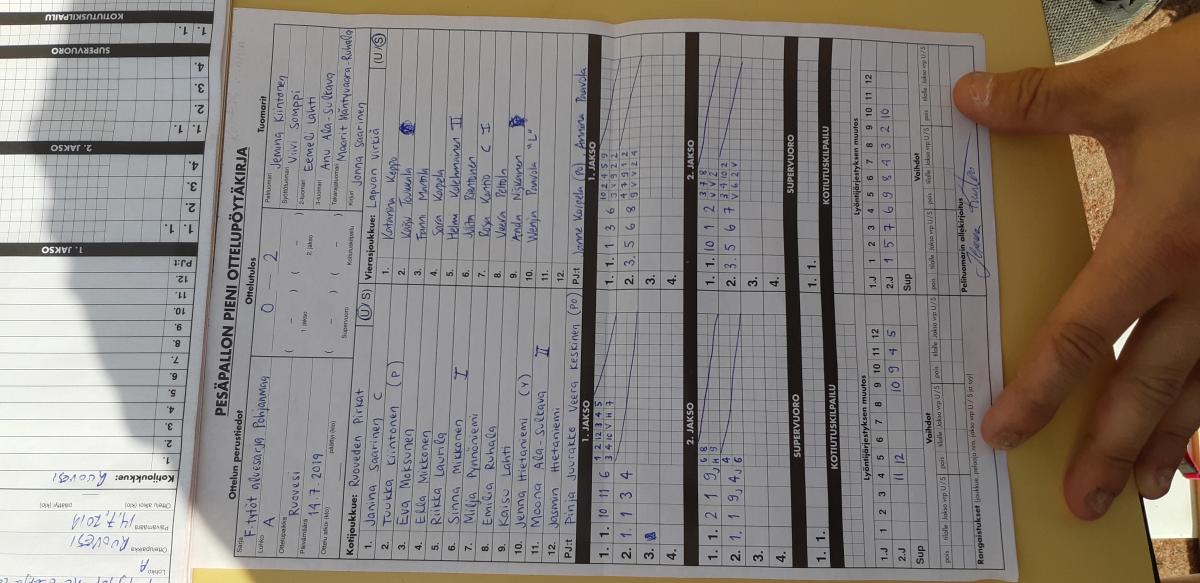 PESÄPALLON PIENI OTTELUPÖYTÄKIRJA
Ottelun perustiedot
Ottelutulos
Tuomarit
Sarja F-tytöt aluesarja Pohjanmaa
Lohko A
Ottelupaikka Ruovesi
Päivämäärä 14.7.2019
Ottelu alkoi (klo) päättyi (klo)
0 – 2
( – ) ( – )
1. jakso 2. jakso
( – ) ( – )
Supervuoro Kotiutuskilpailu
Pelituomari Jemina Kiintonen
Syöttötuomari Viivi Somppi
2-tuomari Eemeli Lahti
3-tuomari Anu Ala-Sulkava
Takarajatuomari Maarit Mäntyvaara-Ruhala
Kirjuri Jonna Saarinen
Kotijoukkue: Ruoveden Pirkat (U/S)
1. Janina Saarinen C
2. Tuukka Kiintonen (P)
3. Eva Moksunen
4. Ella Mikkonen
5. Riikka Laurila
6. Sinna Mikkonen I
7. Milja Pynnäniemi
8. Emilia Ruhala
9. Kaisu Lahti
10. Jenna Hietaniemi (Y)
11. Moona Ala-Sulkava II
12. Jasmin Hietaniemi
PJ:t Pinja Juurakke Veera Keskinen (PO)
Vierasjoukkue: Lapuan Virkiä (U/S)
1. Katariina Keppo
2. Kaisu Touvila
3. Fanni Mattila
4. Sara Karpela
5. Helmi Kulehmainen II
6. Julia Rantanen
7. Rosa Kamppo C I
8. Veera Peltola
9. Anda Niskanen
10. Wenja Paavola "L"
11.
12.
PJ:t Janne Karpela (PJ), Annina Paavola
1. JAKSO
1. 1. 10 11 6 1 2 12 3 4 5
3 4 10 V H 7
2. 1 1 3 4
3.
4.
1. JAKSO
1. 1. 1 3 6 10 2 4 5 9
3 V 9 2 2
2. 3. 5 6 8 4 7 9 1 2
9 V V 2 4
3.
4.
2. JAKSO
1. 1. 2 1 9
2. 1.
3.
4.
2. JAKSO
1. 1. 10 1 2 3 7 8
V V 2
2. 3. 5 6 7 3 4 10 2
V 6 2 V
3.
4.
SUPERVUORO
1. 1.
SUPERVUORO
1. 1.
KOTIUTUSKILPAILU
KOTIUTUSKILPAILU
Lyöntijärjestyksen muutos
1.J 1 2 3 4 5 6 7 8 9 10 11 12
2.J 11 12 10 9 4 5
Sup
Lyöntijärjestyksen muutos
1.J 1 2 3 4 5 6 7 8 9 10 11 12
2.J 1 5 7 6 9 8 4 3 2 10
Sup
Vaihdot
pois tilalle Jakso vrp U / S
Vaihdot
pois tilalle Jakso vrp U / S
Rangaistukset (joukkue, pelaaja nro, jakso vrp U / S ja syy)
Pelituomarin allekirjoitus
Lohko A
Ottelupaikka RUOVESI
Päivämäärä 14.7.2019
Ottelu alkoi (klo) päättyi (klo)
Kotijoukkue: RUOVESI
1.
2.
3.
4.
5.
6.
7.
8.
9.
10.
11.
12.
PJ:t
1. JAKSO
1. 1.
2.
3.
4.
2. JAKSO
1. 1.
2.
3.
4.
SUPERVUORO
1. 1.
KOTIUTUSKILPAILU